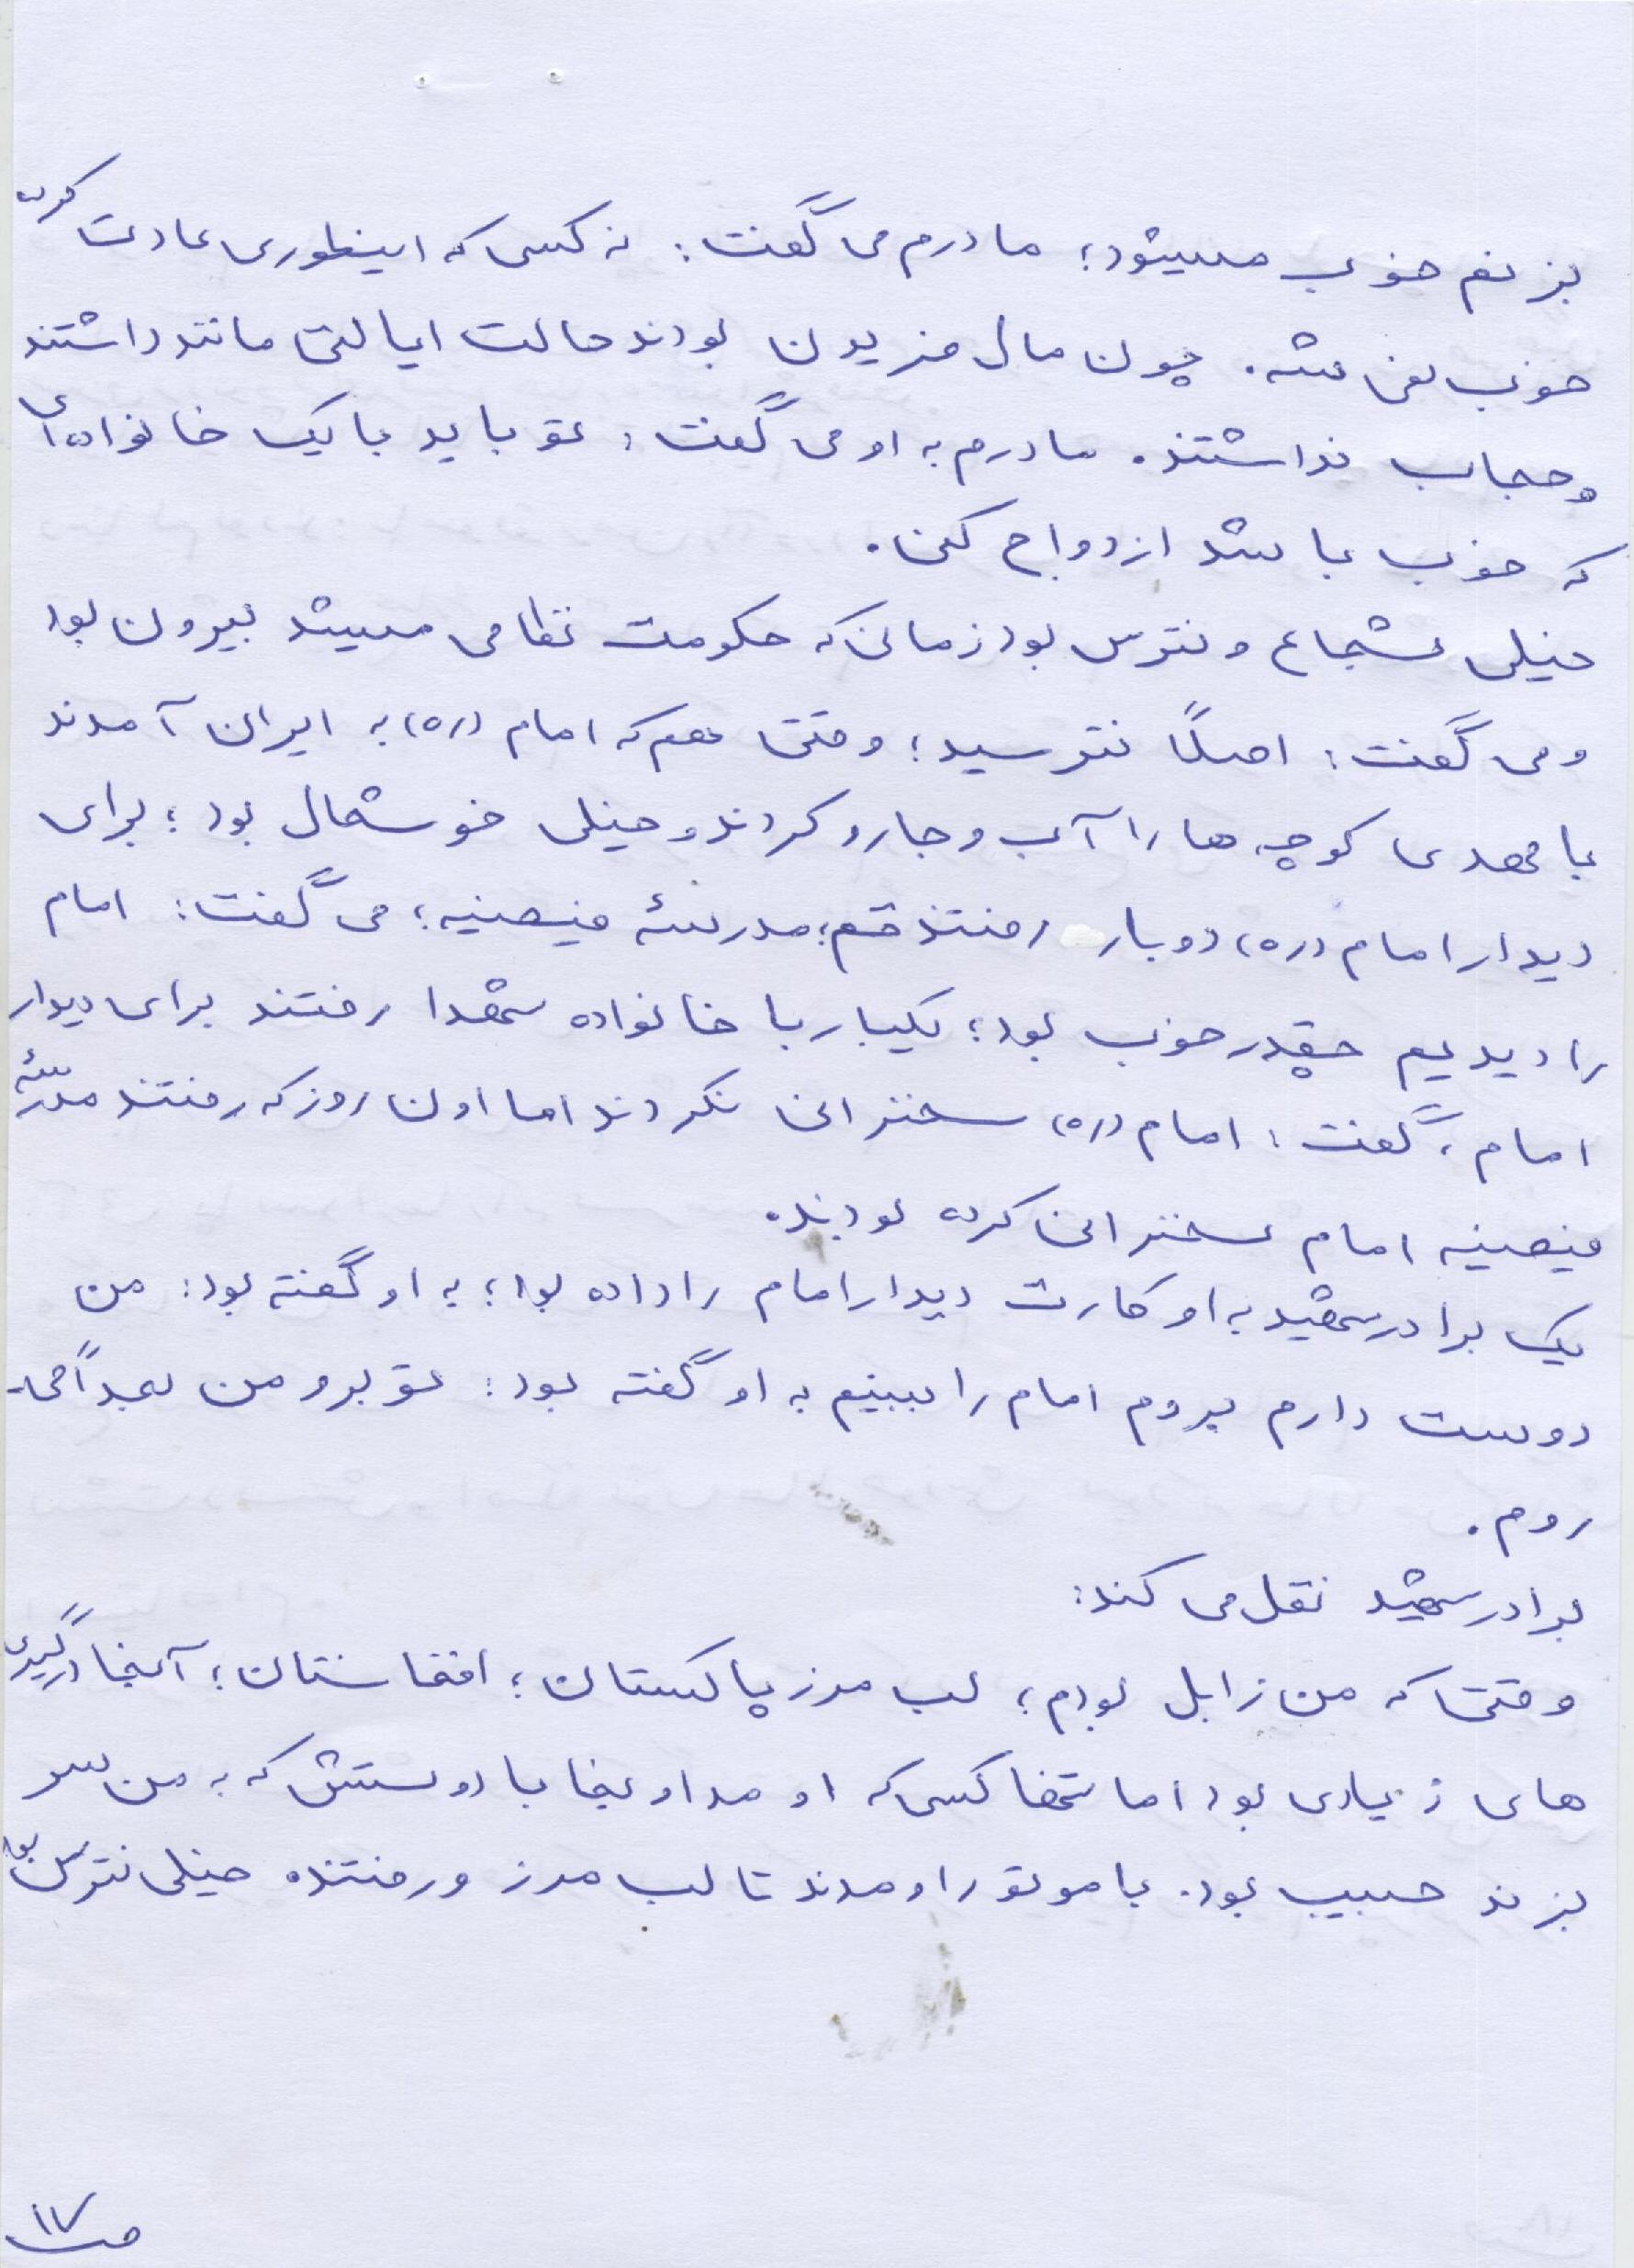 بزنم خوب میشود؛ مادرم می گفت: نه کسی که اینطوری عادت کرده
خوب نمی شه. چون مال فریدن بودند حالت ایالتی مانند داشتند
و حجاب نداشتند. مادرم به او می گفت: تو باید با یک خانواده ای
که خوب باشد ازدواج کنی.
خیلی شجاع و نترس بود زمانی که حکومت نظامی میشد بیرون بود
و می گفت: اصلاً نترسید؛ وقتی هم که امام (ره) به ایران آمدند
با مهدی کوچه ها را آب و جارو کردند و خیلی خوشحال بود؛ برای
دیدار امام (ره) دوبار رفتند قم؛ مدرسۀ فیضیه؛ می گفت: امام
را دیدیم چقدر خوب بود؛ یکبار با خانواده شهدا رفتند برای دیدار
امام، گفت: امام (ره) سخنرانی نکردند اما اون روز که رفتند مدرسۀ
فیضیه امام سخنرانی کرده بودند.
یک برادر شهید به او کارت دیدار امام را داده بود؛ به او گفته بود: من
دوست دارم بروم امام را ببینم به او گفته بود: تو برو من بعداً می-
روم.
برادر شهید نقل می کند:
وقتی که من زابل بودم؛ لب مرز پاکستان؛ افغانستان؛ آنجا درگیری
های زیادی بود اما تنها کسی که اومد اونجا با دوستش که به من سر
بزند حبیب بود. با موتور اومدند تا لب مرز و رفتند. خیلی نترس بود
ص ۱۷